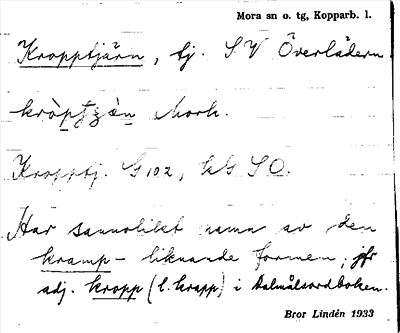 Mora sn o. tg, Kopparb. l.
Kropptjärn, tj. S.V Överlädern.
kròptjǝ̀n Morh.
Kropptj. G 102, hG SO.
Har sannolikt namn av den
kramp-liknande formen; jfr
adj. kropp (l. krapp) i Dalmålsordboken.
Bror Lindén 1933